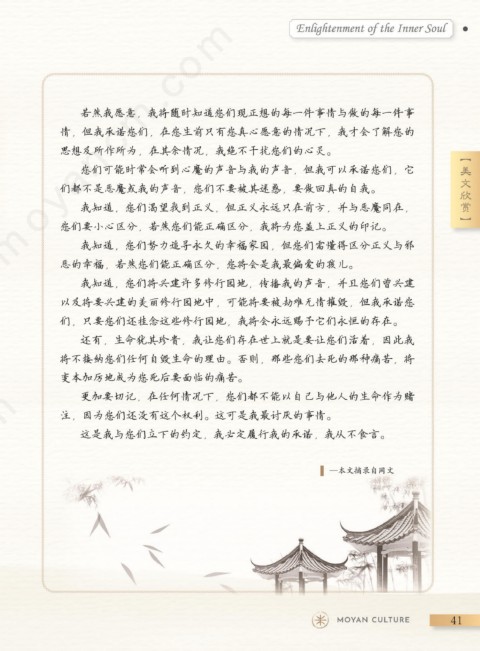 Enlightenment of the Inner Soul
若然我愿意，我将随时知道您们现正想的每一件事情与做的每一件事
情，但我承诺您们，在您生前只有您真心愿意的情况下，我才会了解您的
思想及所作所为，在其余情况，我绝不干扰您们的心灵。
您们可能时常会听到心魔的声音与我的声音，但我可以承诺您们，它
们都不是恶魔或我的声音，您们不要被其迷惑，要做回真的自我。
我知道，您们渴望找到正义，但正义永远只在前方，并与恶魔同在，
您们要小心区分，若然您们能正确区分，我将为您盖上正义的印记。
我知道，您们努力追寻永久的幸福家园，但您们需懂得区分正义与邪
恶的幸福，若然您们能正确区分，您将会是我最偏爱的孩儿。
我知道，您们将兴建许多修行园地，传播我的声音，并且您们曾兴建
以及将要兴建的美丽修行园地中，可能将要被劫难无情摧毁，但我承诺您
们，只要您们还挂念这些修行园地，我将会永远赐予它们永恒的存在。
还有，生命犹其珍贵，我让您们存在世上就是要让您们活着，因此我
将不接纳您们任何自毁生命的理由。否则，那些您们去死的那种痛苦，将
变本加厉地成为您死后要面临的痛苦。
更加要切记，在任何情况下，您们都不能以自己与他人的生命作为赌
注，因为您们还没有这个权利。这可是我最讨厌的事情。
这是我与您们立下的约定，我必定履行我的承诺，我从不食言。
—本文摘录自网文
【美文欣赏】
MOYAN CULTURE
41